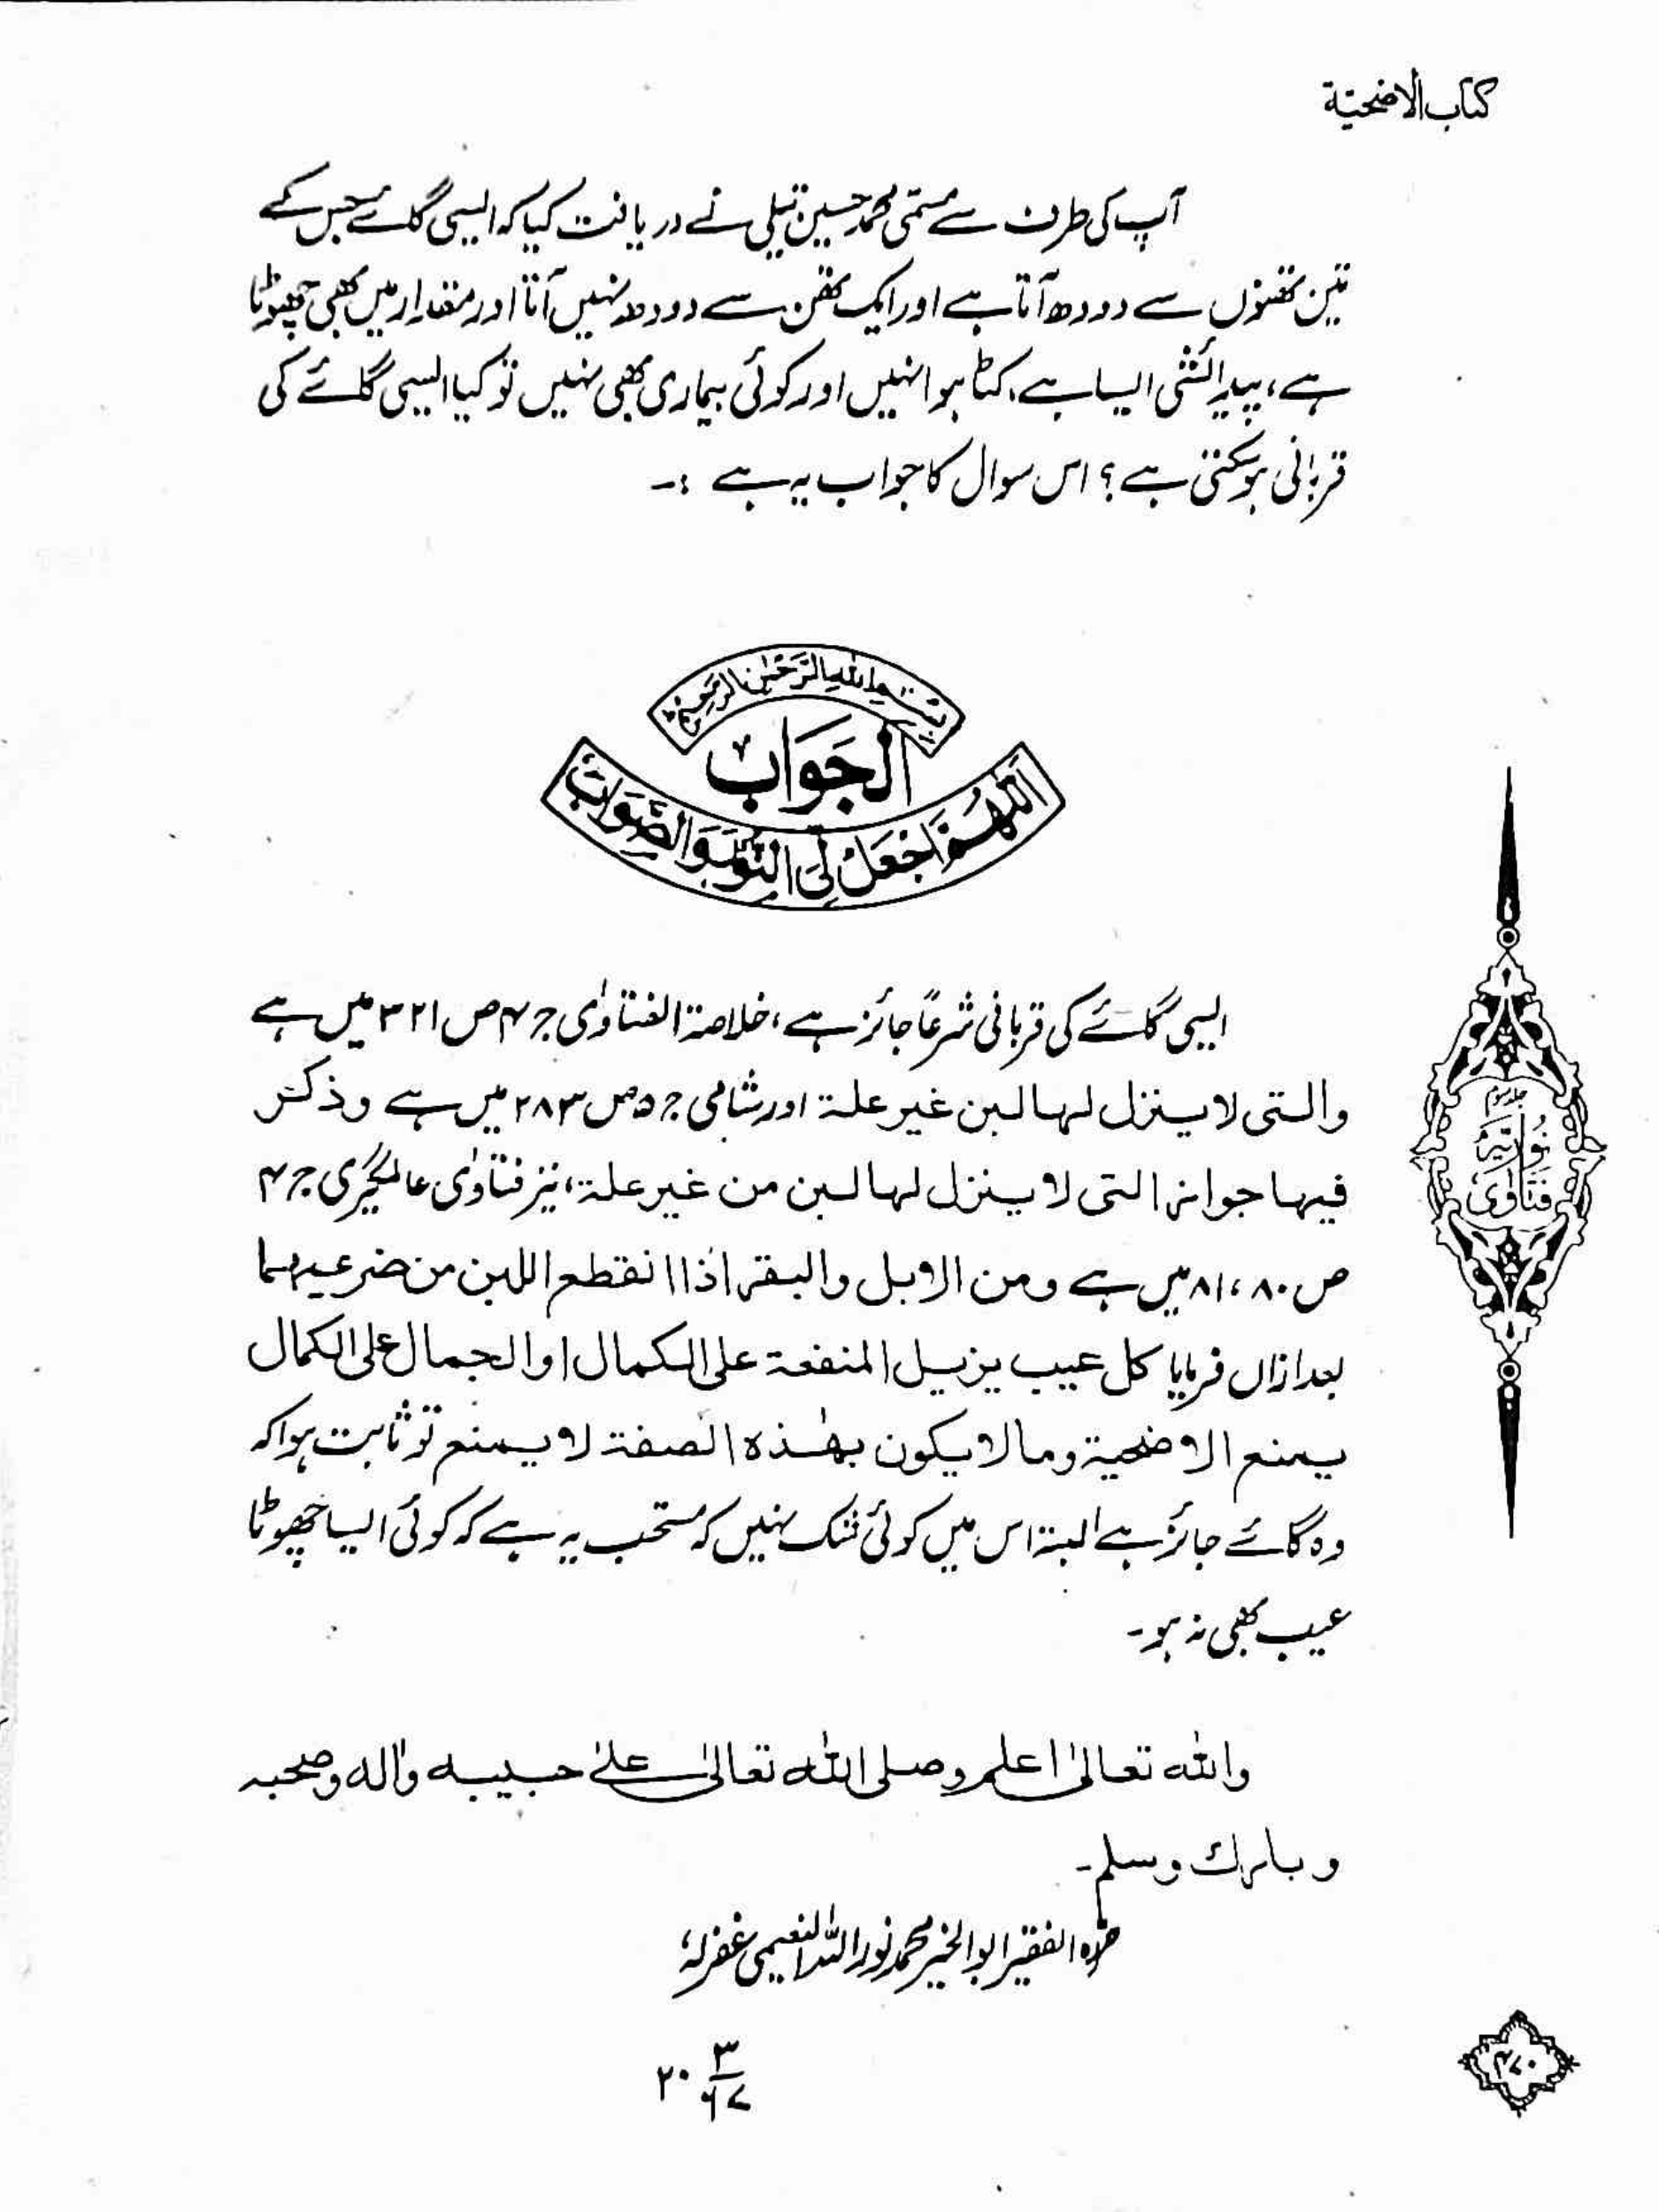 کتاب الاضحیۃ
آپ کی طرف سے مسمّی محمد حسین تیلی نے دریافت کیا کہ ایسی گائے جس کے
تین تھنوں سے دودھ آتا ہے اور ایک تھن سے دودھ نہیں آتا اور مقدار میں بھی چھوٹا
ہے، پیدائشی ایسا ہے، کٹا ہوا نہیں اور کوئی بیماری بھی نہیں تو کیا ایسی گائے کی
قربانی ہو سکتی ہے؟ اس سوال کا جواب یہ ہے :۔
بِسْمِ اللّٰهِ الرَّحْمٰنِ الرَّحِیْمِ
الجَوَاب
اَللّٰهُمَّ اجْعَلْ لِیَ النُّوْرَ وَالصَّوَابَ
ایسی گائے کی قربانی شرعاً جائز ہے، خلاصۃ الفتاوٰی ج ۴ ص ۳۲۱ میں ہے
والتی لا ینزل لہا لبن غیر علۃ اور شامی ج ۵ ص ۲۸۳ میں ہے وذکر
فیہا جواز التی لا ینزل لہا لبن من غیر علۃ، نیز فتاوٰی عالمگیری ج ۴
ص ۸۰، ۸۱ میں ہے ومن الابل والبقر اذا انقطع اللبن من ضرعیہما
بعد ازاں فرمایا کل عیب یزیل المنفعۃ علی الکمال او الجمال علی الکمال
یمنع الاضحیۃ وما لا یکون بھٰذہ الصفۃ لا یمنع تو ثابت ہوا کہ
وہ گائے جائز ہے البتہ اس میں کوئی شک نہیں کہ مستحب یہ ہے کہ کوئی ایسا چھوٹا
عیب بھی نہ ہو۔
واللہ تعالیٰ اعلم وصلی اللہ تعالیٰ علیٰ حبیبہ واٰلہ وصحبہ
وبارك وسلم۔
حررہ الفقیر ابو الخیر محمد نور اللہ النعیمی غفرلہ،
۲۰ ۳/۶۷
جلد سوم
نُورِیَّہ
فَتَاوٰی
۴۷۰